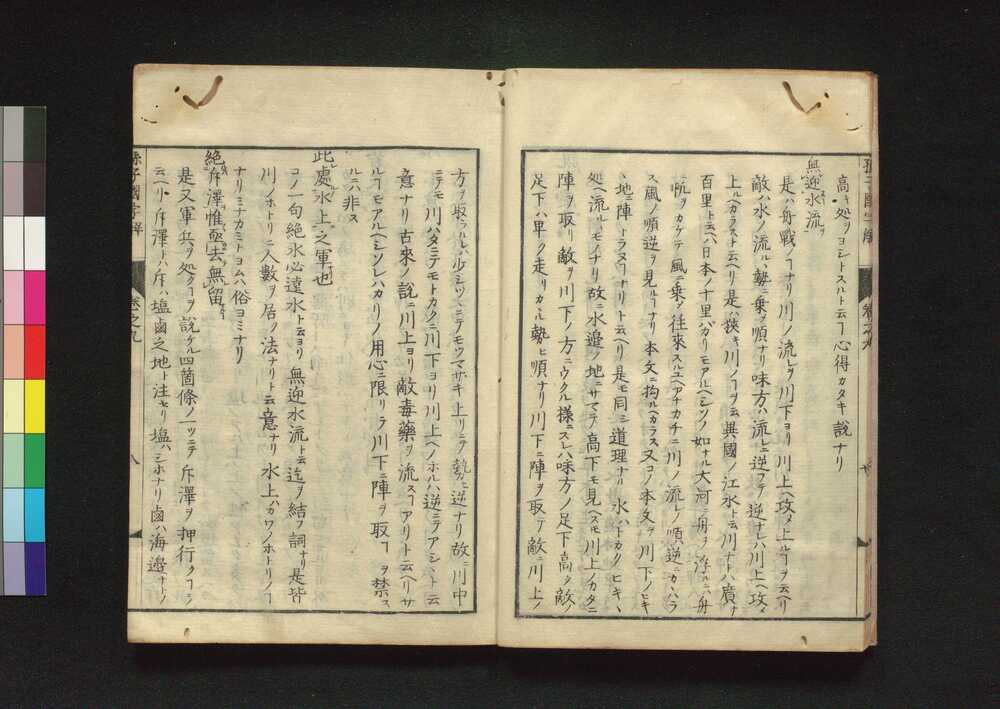 高キ処ヲヨシトスルト云フ心得カタキ説ナリ
無迎水流
是ハ舟戦ノヿナリ川ノ流レヲ川下ヨリ川上ヘ攻メ上ルヿヲ云ヘリ
敵ハ水ノ流ルヽ勢ニ乗ソ順ナリ味方ハ流レニ逆フテ逆ナレハ川上ヘ攻メ
上ルヘカラスト云ヘリ是ハ狭キ川ノヿヲ云異國ノ江水ト云川ナトハ廣サ
百里ト云ヘハ日本ノ十里ハカリモアルヘシソノ如ナル大河ニ舟ヲ浮ルニハ舟
帆ヲカケテ風ニ乗ソ往来スルユヘアナカチニ川ノ流レノ順逆ニカヽハラ
ス風ノ順逆ヲ見ルヿナリ本文ニ拘ルヘカラス又コノ本文テ川下ノヒキ
地ニ陣トラヌヿナリト云ヘリ是モ同シ道理ナリ水ハトカクヒキヽ
処ヘ流ルヽモノナリ故ニ水邉ノ地ニサマテ高下モ見ヘスモ川上ノカタニ
陣ヲ取リ敵ヲ川下ノ方ニウクル様ニスレハ味方ノ足下高ク敵ノ
足下ハ早ク走リカヽル勢ヒ順ナリ川下ニ陣ヲ取テ敵川上ノ
方ヲ取ラルレハ少シツヽニテモツマサキ上リニテ勢ヒ逆ナリ故ニ川中
ニテモ川ハタニテモトカクニ川下ヨリ川上ヘノホルハ逆ニテアシヽト云
意ナリ古來ノ説ニ川上ヨリ敵毒藥ヲ流スヿアリト云ヘリサ
ルヿモアルヘシソレハカリノ用心ニ限リテ川下ニ陣ヲ取ヿヲ禁ス
ルニハ非ス
此處水上之軍也
コノ一句絶水必遠水ト云ヨリ無迎水流ト云迄ヲ結フ詞ナリ是皆
川ノホトリニ人數ヲ居ク法ナリト云意ナリ水上ハカワノホトリノヿ
ナリミナカミトヨムハ俗ヨミナリ
絶斥澤惟亟去無留
是又軍兵ヲ処クヿヲ説ケル四箇條ノ一ツニテ斥澤ヲ押行クヿヲ
云ヘリ斥澤トハ斥ハ塩鹵之地ト注セリ塩ハシホナリ鹵ハ海邉ナトノ
孫子國字解
卷之九
八